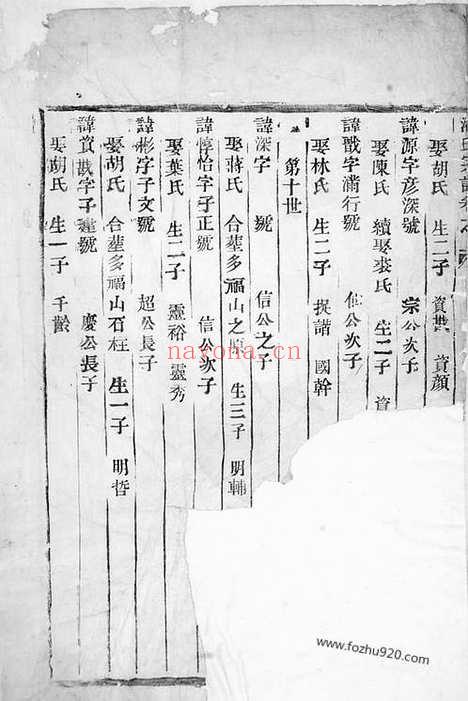 娶胡氏 生二子 資戡 資顏
諱源字彥深號 宗公次子
娶陳氏 續娶裘氏 生二子 資
諱戩字滿行號 公次子
娶林氏 生二子 諧 國幹
第十世
諱深字 號 信公之子
娶蔣氏 合塟多福山之原 生三子 明輔
諱惇怡字子正號 信公次子
娶葉氏 生二子 靈裕 靈秀
諱彬字子文號 超公長子
娶胡氏 合塟多福山石柱 生一子 明哲
諱資戡字子達號 慶公長子
娶胡氏 生一子 千齡
nayona.cn
www.fozhu920.com